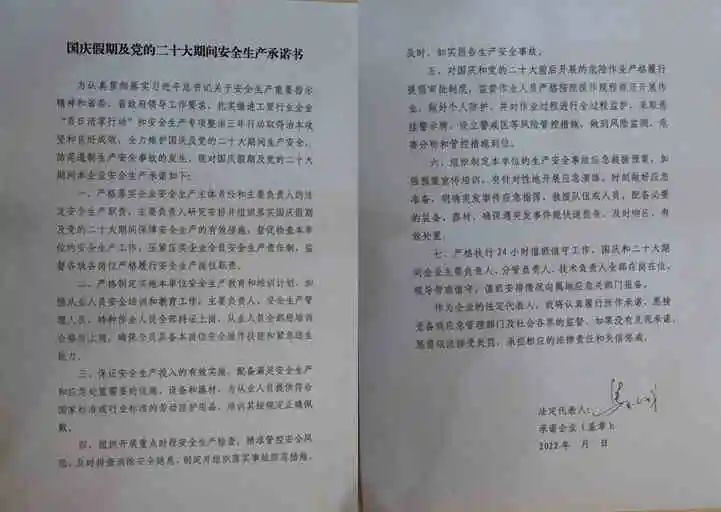 国庆假期及党的二十大期间安全生产承诺书
为认真贯彻落实习近平总书记关于安全生产重要指示
精神和省委、省政府领导工作要求,扎实推进工贸行业企业
“百日清零行动”和安全生产专项整治三年行动取得治本攻
坚和良好成效,全力维护国庆及党的二十大期间安全生产,
防范遏制生产安全事故的发生,现对国庆假期及党的二十大
期间本企业安全生产承诺如下:
一、严格落实企业安全生产主体责任和主要负责人的法
定安全生产职责,主要负责人研究安排并组织落实国庆假期
及党的二十大期间保障安全生产的有效措施,督促检查本单
位的安全生产工作,压紧压实企业全员安全生产责任制,监
督各级各岗位严格履行安全生产岗位职责。
二、严格制定实施本单位安全生产教育和培训计划,加
强从业人员安全培训和教育工作,主要负责人、安全生产管
理人员、特种作业人员全部持证上岗,从业人员全部经培训
合格后上岗,确保全员具备本岗位安全操作技能和紧急逃生
能力。
三、保证安全生产投入的有效实施,配备满足安全生产
和应急处置需要的设施、设备和器材,为从业人员提供符合
国家标准或行业标准的劳动防护用品,培训其按规定正确佩
戴。
四、组织开展重点时段安全生产检查,精准管控安全风
险,及时排查消除安全隐患,制定并组织落实事故防范措施,
及时、如实报告生产安全事故。
五、对国庆和党的二十大前后开展的危险作业严格履行
提级审批制度,监督作业人员严格按照操作规程规范开展作
业,做好个人防护,并对作业过程进行全过程监护,采取悬
挂警示牌、设立警戒区等风险管控措施,做到风险监测、危
害分析和管控措施到位。
六、组织制定本单位的生产安全事故应急救援预案,加
强预案宣传培训,有针对性地开展应急演练,时刻做好应急
准备,明确突发事件应急指挥、救援队伍或人员,配备必要
的装备、器材,确保遇突发事件能快速应急、及时响应、有
效处置。
七、严格执行24小时值班值守工作,国庆和二十大期
间企业主要负责人、分管负责人、技术负责人全部在岗在位,
领导带班值守,值班安排情况向属地应急部门报备。
作为企业的法定代表人,我将认真履行所作承诺,恳接
受各级应急管理部门及社会各界的监督。如果没有兑现承诺,
愿意依法接受处罚,承担相应的法律责任和失信惩戒。
法定代表人:
承诺企业(盖章):
2022年 月 日